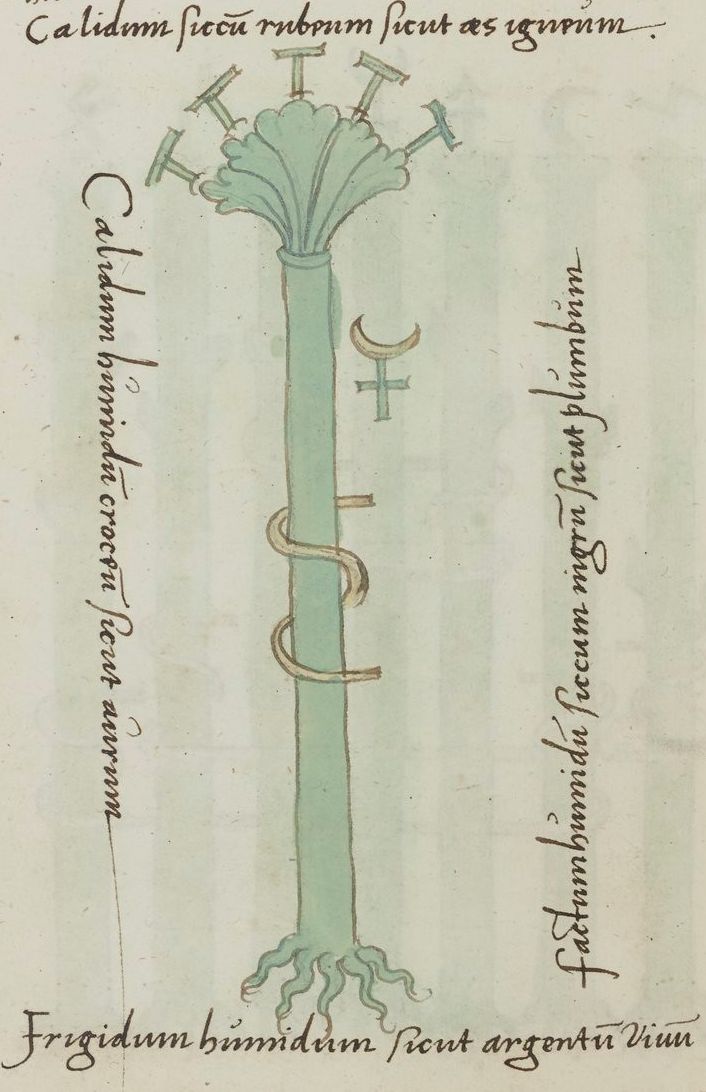 Calidum siccū rubeum sicut æs igneum.
Calidum húmidū croceū sicut aúrum
factum húmidū siccum nigrū sicut plúmbúm
Frigidum húmidum sicut argentū viuū